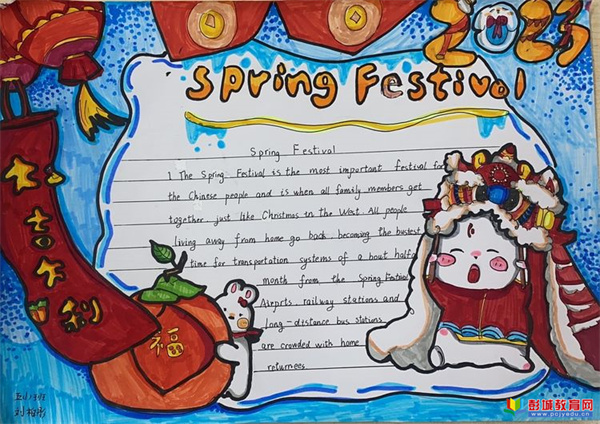 2023
Spring Festival
Spring Festival
1 The Spring Festival is the most important festival for
the Chinese people and is when all family members get
together just like Christmas in the West. All people
living away from home go back, becoming the busiest
time for transportation systems of a bout half a
month from the Spring Festival
Airprts, railway stations and
long-distance bus stations
are crowded with home
returnees
大吉大利
福
彭城教育网
www.pcjyedu.cn